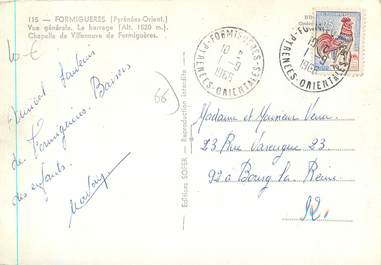 115 - FORMIGUERES (Pyrénées-Orient.)
Vue générale. Le barrage (Alt. 1020 m.)
Chapelle de Villeneuve de Formiguères.
10 €
66
Amical Souvenir
de Formiguères. Baisers
des enfants.
Editions SOFER - Reproduction interdite
FORMIGUERES
PYRENEES-ORIENTALES
1-9
1965
FORMIGUERES
PYRENEES-ORIENTALES
Madame et Monsieur
23 Rue
92 à Bourg la Reine
92.